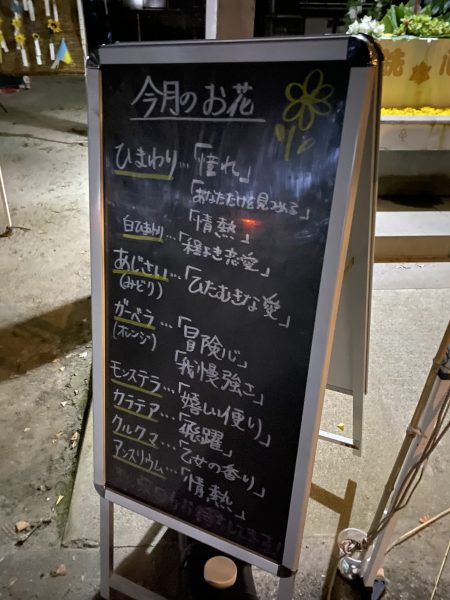 今月のお花
ひまわり…「憧れ」
「あなただけを見つめる」
「情熱」
白ひまわり…「程よき恋愛」
あじさい…「ひたむきな愛」
(みどり)
ガーベラ…「冒険心」
(オレンジ)「我慢強さ」
モンステラ…「嬉しい便り」
カラテア…「飛躍」
クルクマ…「乙女の香り」
アンスリウム…「情熱」